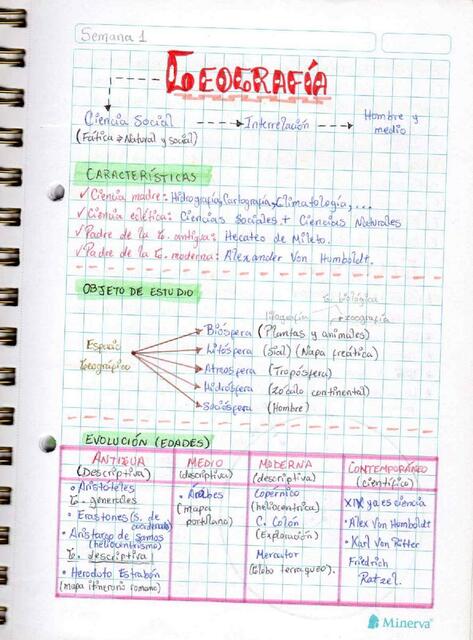 Semana 1
GEOGRAFÍA
Ciencia Social
(Fática → Natural y social)
Interrelación
Hombre y
medio
CARACTERÍSTICAS
✓ Ciencia madre: Hidrografía, Cartografía, Climatología, ...
✓ Ciencia eclética: Ciencias Sociales + Ciencias Naturales
✓ Padre de la G. antigua: Hecateo de Mileto.
✓ Padre de la G. moderna: Alexander Von Humboldt.
OBJETO DE ESTUDIO
G. biológica
zoografía
Espacio
Geográfico
Biósfera (Plantas y animales)
Litósfera (Sial) (Napa freática)
Atmósfera (Tropósfera)
Hidrósfera (Zócalo continental)
Sociósfera (Hombre)
EVOLUCIÓN (EDADES)
ANTIGUA
(Descriptiva)
• Aristóteles
G. generales
• Erastones (S. de
coordenadas)
• Aristarco de Samos
(heliocentrismo)
G. descriptiva
• Heroduto Estrabón
(mapa itinerario romano)
MEDIO
(descriptiva)
• Arabes
(mapa
portulano)
MODERNA
(descriptiva)
Copernico
(heliocentrica)
C. Colón
(Exploración)
Mercator
(Globo terraqueo).
CONTEMPORÁNEO
(científico)
XIX ya es ciencia
• Alex Von Humboldt
• Karl Von Ritter
Friedrich
Ratzel.
Minerva